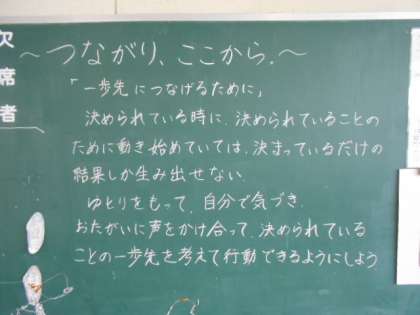 欠席者
～つながり、ここから.～
「一歩先につなげるために」
決められている時に、決められていることの
ために動き始めていては、決まっているだけの
結果しか生み出せない.
ゆとりをもって、自分で気づき、
おたがいに声をかけ合って、決められている
ことの一歩先を考えて行動できるようにしよう